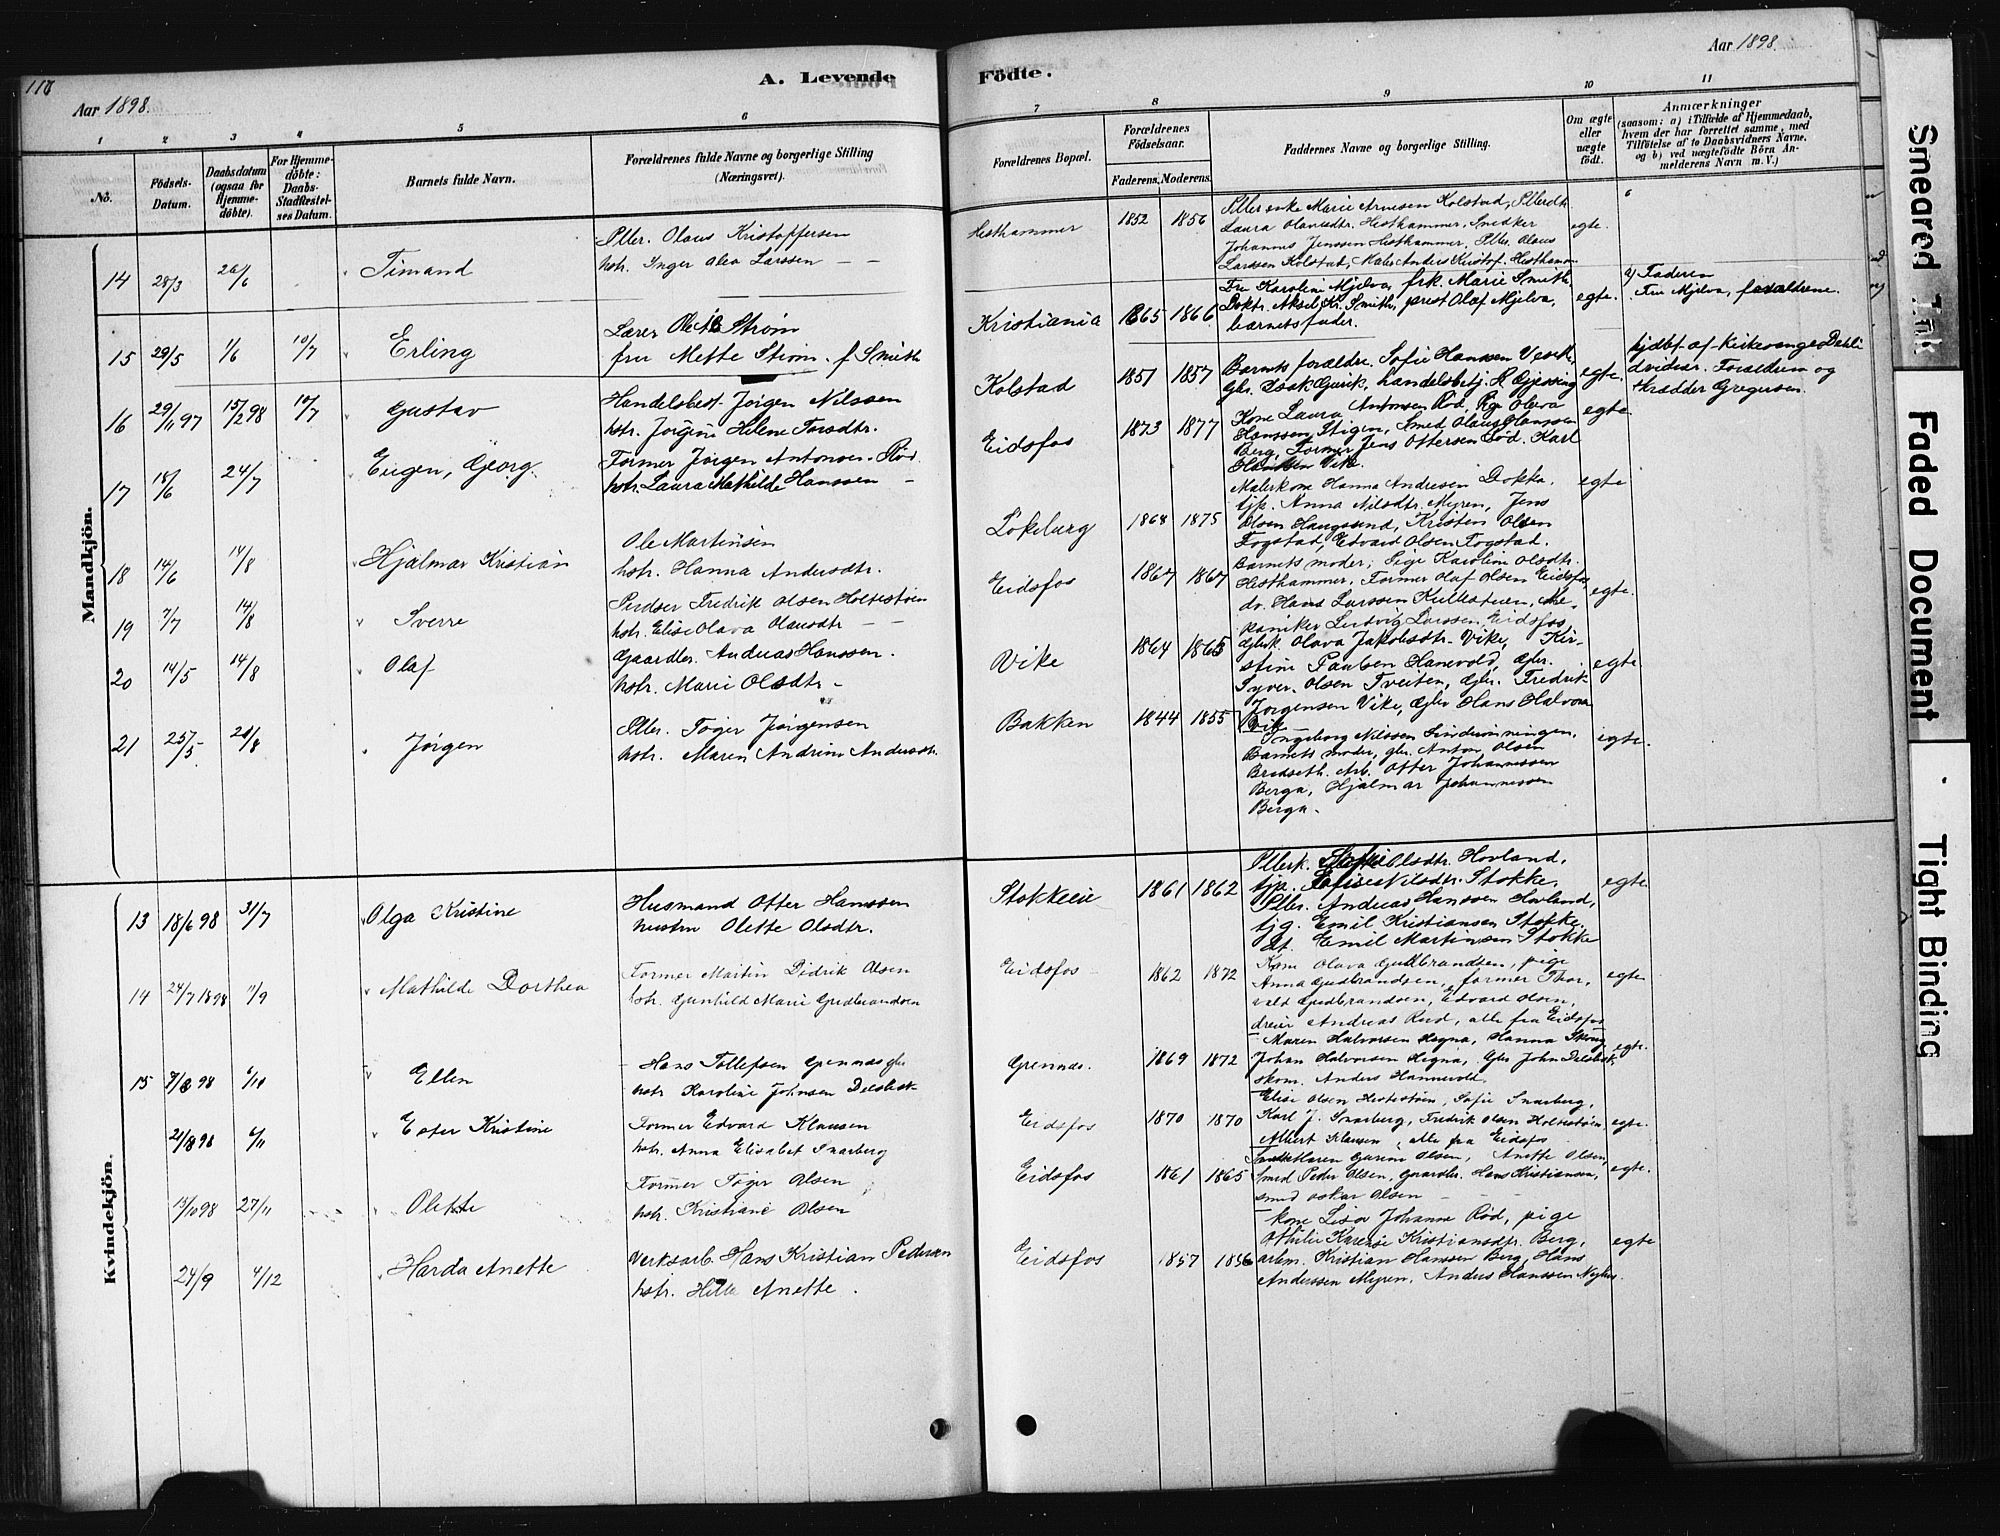 118
Aar 1898.
A. Levende
1 2 3 4 5 6
No.
Födsels-Datum.
Daabsdatum (ogsaa for Hjemmedöbte).
For Hjemmedöbte: Daabs-Stadfæstelses Datum.
Barnets fulde Navn.
Forældrenes fulde Navne og borgerlige Stilling (Næringsvei).
Mandkjön.
14 28/3 26/6 Timand
Pller. Olaus Kristoffersen
hstr. Inger Olea Larssen
15 29/5 1/6 10/7 Erling
Lærer Ole Strøm
fru Mette Strøm f. Smith
16 29/11 97 15/2 98 10/7 Gustav
Handelsbest. Jørgen Nilssen
hstr. Jørgine Helene
17 18/6 24/7 Eugen, Georg.
Former Jørgen Antonsen Rød
hstr. Laura Mathilde Hanssen
18 14/6 14/8 Hjalmar Kristian
Ole Martinsen
hstr. Hanna Andersdtr.
19 7/7 14/8 Sverre
Fredrik Olsen Holtestøen
hstr. Elise Olava Olausdtr
20 14/5 14/8 Olaf
Gaardbr. Andreas Hanssen.
hstr. Marie Olsdtr
21 25/5 28/8 Jørgen
Pller. Tøger Jørgensen
hstr. Maren Andrine Andersdtr.
Kvindekjön.
13 18/6 98 31/7 Olga Kristine
Husmand Otter Hanssen
hustru Olette Olsdtr.
14 24/7 1898 11/9 Mathilde Dorthea
Former Martin Didrik Olsen
hstr. Gunhild Marie Gudbrandsen
15 7/8 98 6/11 Ellen
Hans Tollefsen Grennæs gbr
hstr Karoline Johnsen
21/8 98 6/11 Ester Kristine
Former Edvard Klausen
hstr. Anna Elisabet Snarberg
15/10 98 27/11 Olette
Former Tøger Olsen
hstr. Kristiane Olsen
24/9 4/12 Harda Anette
Verksarb. Hans Kristian Pedersen
hstr. Anette.
Födte.
Aar 1898.
7 8 9 10 11
Forældrenes Bopæl.
Forældrenes Födselsaar.
Faderens. Moderens.
Faddernes Navne og borgerlige Stilling.
Om ægte eller uægte födt.
Anmærkninger
(saasom: a) i Tilfælde af Hjemmedaab,
hvem der har forrettet samme, med
Tilföielse af to Daabsvidners Navne.
og b) ved uægtefödte Börn An-
melderens Navn m. V.)
Hesthammer 1852 1856
Marie Arnesen Kolstad,
Laura Olausdtr. Hesthammer, Snedker
Johannes Jenssen Hesthammer, Pller. Olaus
Larssen Kolstad, Maler Anders Kristof. Hestham
egte.
Kristiania 1865 1866
Fru Karoline Mjelva, frk. Marie Smith,
Doktr. Aksel Kr. Smith, prest Olaf Mjelva,
barnets fader.
egte.
a) Faderen
Fru Mjelva, forældrene.
Kolstad 1851 1857
Barnets forældre. Sofie Hanssen
Gbr. Isak handelsbetj. Gjessing
egte.
hjdbt. af Kirkesanger Dahl
dvidner. Forældrene og
Skrædder Gregersen.
Eidsfos 1873 1877
Kone Laura Antonsen Rød, Pige Olava
Hanssen Stigen, Smed Olaus Hanssen
Berg, Former Jens Ottersen Rød. Karl
Hanssen Vike.
egte
Løkeberg 1868 1875
Malerkone Hanna Andresen Dokka,
tjp. Anna Nilsdtr. Myren, Jens
Olsen Haugsund, Kristen Olsen
Fogstad, Edvard Olsen Fogstad.
egte
Eidsfos 1867 1867
Barnets moder, Pige Karoline Olsdtr.
Hesthammer, Former Olaf Olsen Eidsfos
dv. Hans Larssen Me-
kaniker Ludvig Larssen, Eidsfos
egte.
Vike 1864 1865
Gbrk. Olava Jakobsdtr. Vike, Kir-
stine Paulsen Hanevold, Gbr.
Syver Olsen Tveiten, Gbr. Fredrik
Jørgensen Vike, Gbr Hans Halvors
Vike
egte
Bakken 1844 1855
Ingeborg Nilssen
Barnets moder, gbr. Anton Olsen
Bredseth. Arb. Otter Johannessen
Berga, Hjalmar Johannessen
Berga.
egte.
Stokkeeie 1861 1862
Pllerk. Olsdtr. Hovland,
tjp. Nilsdtr. Stokke,
Pller. Andreas Hanssen Hovland,
tjg. Emil Kristiansen Stokke,
Emil Martinsen Stokke
egte
Eidsfos 1862 1872
Kone Olava Gudbrandsen, pige
Anna Gudbrandsen, former Thor-
vald Gudbrandsen, Edvard Olsen,
dreier Andreas Rud, alle fra Eidsfos
egte
Grennæs. 1869 1872
Maren Halvorsen Hegna, Hanna
Johan Halvorsen Hegna, Gbr John
skom. Anders Hannevold.
egte.
Eidsfos 1870 1870
Elise Olsen Holtestøen, Sofie Snarberg,
Karl J. Snarberg, Fredrik Olsen Holtestøen,
Albert Klausen, alle fra Eidsfos
egte.
Eidsfos 1861 1865
Maren Gurine Olsen, Anette Olsen,
Smed Peder Olsen, Gaardbr. Hans Kristiansen,
smed Oskar Olsen
egte.
Eidsfos 1857 1856
Kone Lisa Johanne Rød, pige
Othilie Karense Kristiansdtr. Berg,
arbm. Kristian Hanssen Berg, Hans
Anderssen Myren, Anders Hanssen
egte
Smeared Ink
Faded Document
Tight Binding